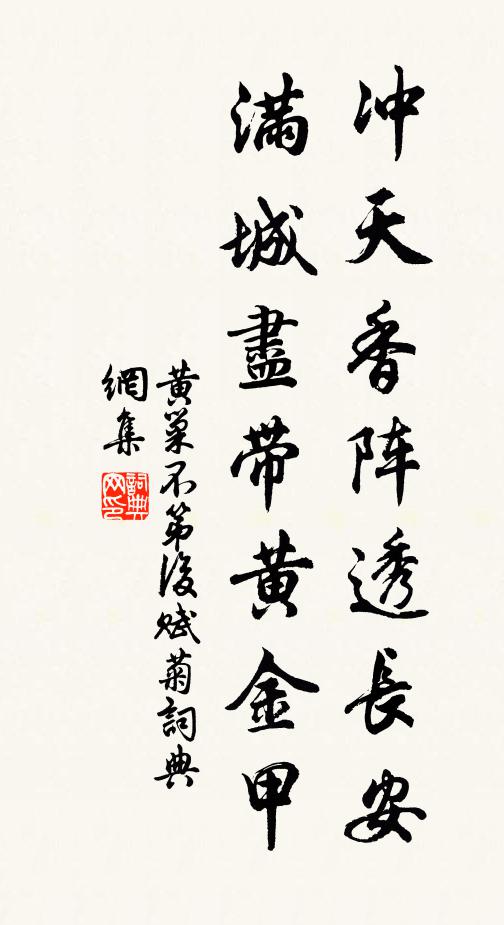 冲天香阵透長安
滿城盡带黄金甲
黄巢不第後賦菊詞典
網集
詞典
网印